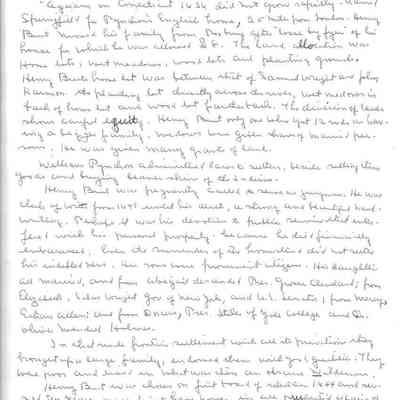 "Agawam on Connecticut 1636 did not grow rapidly. Named
Springfield for Pynchon's English home, 20 miles from London. Henry
Burt moved his family from Roxbury gets "loss by fyer" of his
house for which he was allowed £8. The land allocation was
Home lots, wet meadows, wood lots and planting grounds.
Henry Burts home lot was between that of Samuel Wright and John
. His planting lot directly across the river, wet meadow in
back of home lot and wood lot farther back. The division of lands
shows careful equity. Henry Burt only one who got 12 rods in
a bigger family. Meadows were given shares of married per-
sons. He was given many grants of land.
William Pynchon administered laws to settlers, besides selling them
goods and buying beaver skins of the Indians.
Henry Burt was frequently called to serve on jurymen. He was
clerk of writs from 1648 until his death, a strong and beautiful hand-
writing. Perhaps it was his devotion to public service that inter-
fered with his personal property because he died financially
embarrassed. Even the surrender of the homestead did not settle
his indebtedness. His sons were prominent citizens. His daughters
all married, and from Abigail descended Pres. Grover Cleveland; from
Elizabeth, Silas Wright Gov of New York, and U.S. Senator; from Mercy,
Ethan Allen; and from Dorcas, Pres. Stiles of Yale College and Dr.
Oliver Wendell Holmes.
In that rude frontier settlement with all its privations they
brought up a large family, endowed them with good qualities. They
were poor and lived in what was then an obscure wilderness.
Henry Burt was chosen on first board of selectmen 1644 and